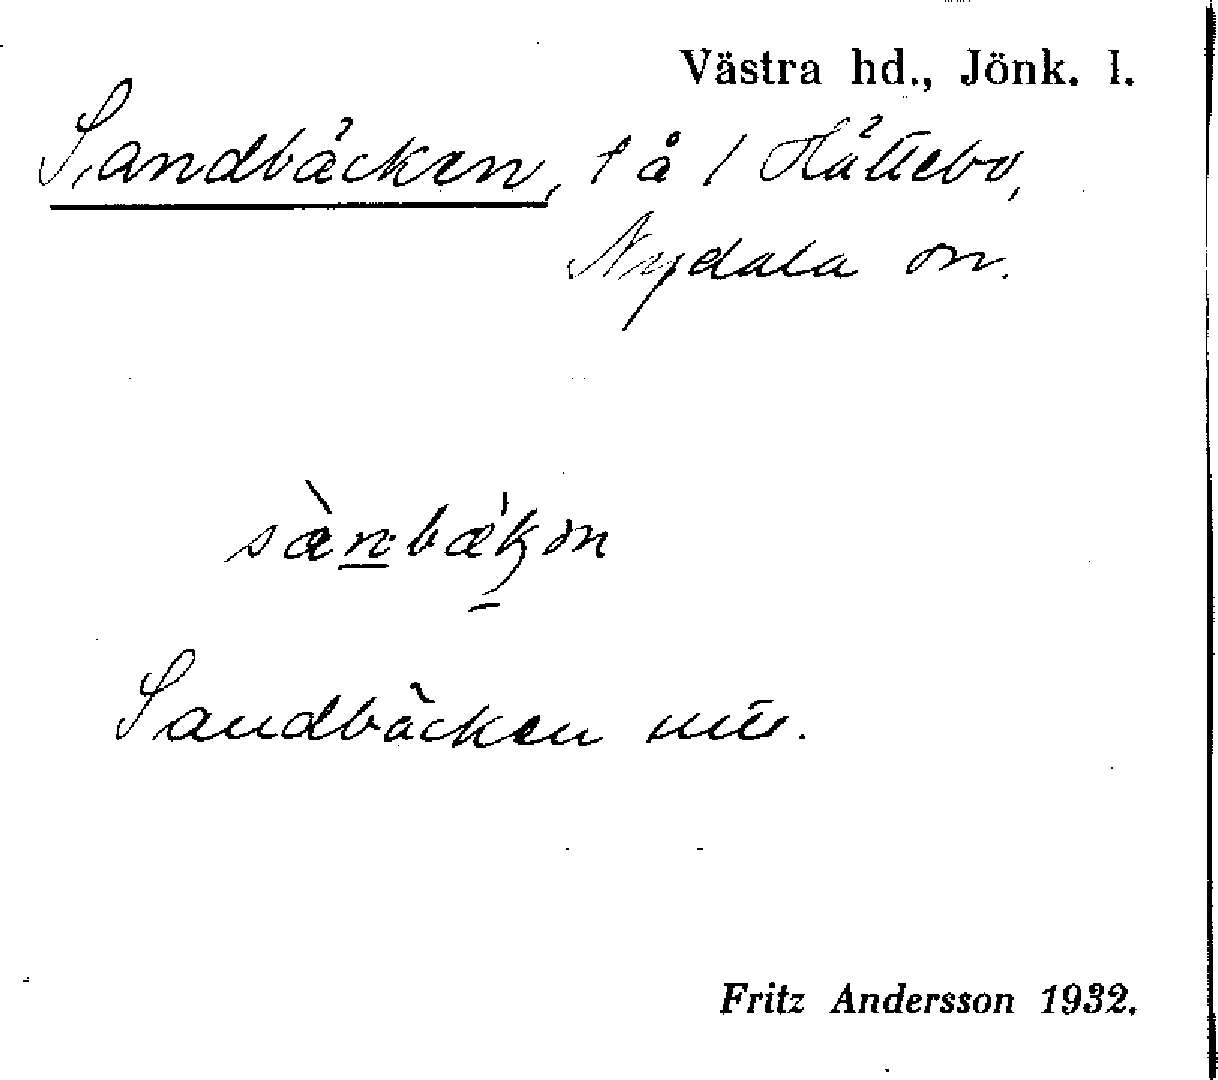 Västra hd., Jönk. l.
Sandbäcken, t å / Hättebo,
Nydala sn.
Sandbäcken
Fritz Andersson 1932.